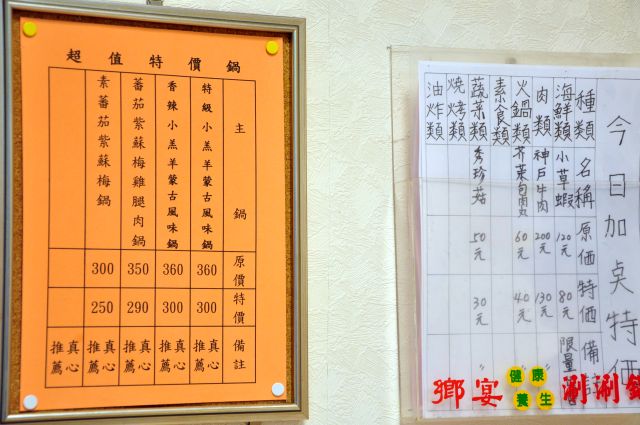 超值特價鍋
主鍋
原價
特價
備註
特級小羔羊蒙古風味鍋
360
300
真心推薦
香辣小羔羊蒙古風味鍋
360
300
真心推薦
番茄紫蘇梅雞腿肉鍋
350
290
真心推薦
素番茄紫蘇梅鍋
300
250
真心推薦
今日加点特価
種類
名稱
原価
特価
備註
海鮮類
小草蝦
120元
80元
限量
肉類
神戶牛肉
200元
130元
〃
火鍋類
芥菜包肉丸
60元
40元
〃
素食類
蔬菜類
秀珍菇
50元
30元
〃
燒烤類
油炸類
鄉宴
健康
養生
涮涮鍋